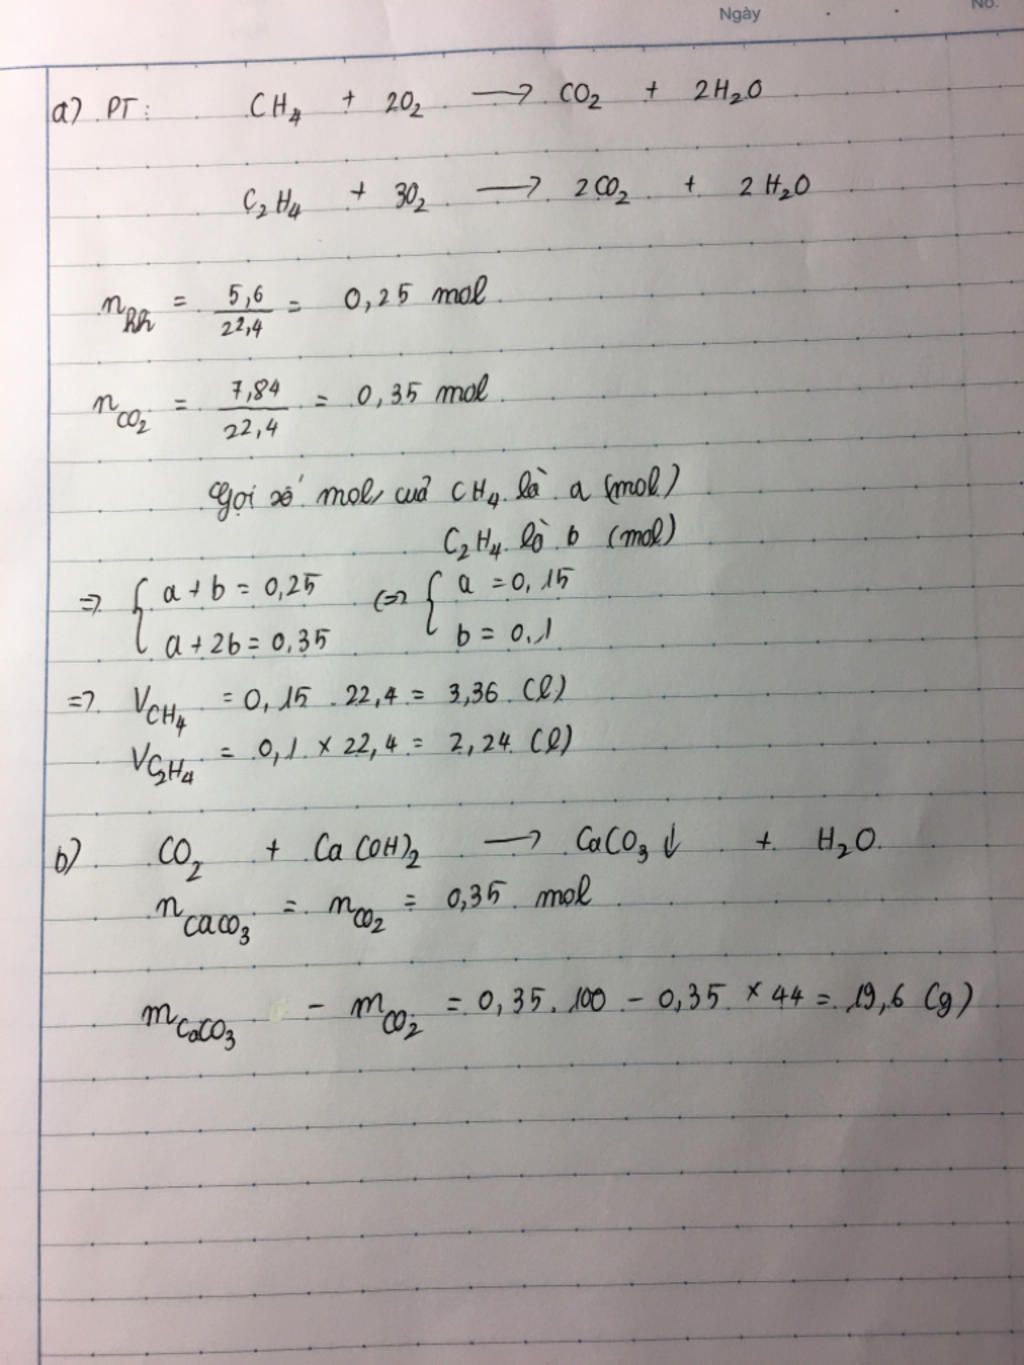 Ngày No.
a) PT: CH₄ + 2O₂ ⟶ CO₂ + 2H₂O
C₂H₄ + 3O₂ ⟶ 2CO₂ + 2H₂O
n_hh = 5,6/22,4 = 0,25 mol
n_CO₂ = 7,84/22,4 = 0,35 mol
Gọi số mol của CH₄ là a (mol)
C₂H₄ là b (mol)
=> { a + b = 0,25 <=> { a = 0,15
a + 2b = 0,35 b = 0,1
=> V_CH₄ = 0,15 . 22,4 = 3,36 (l)
V_C₂H₄ = 0,1 × 22,4 = 2,24 (l)
b) CO₂ + Ca(OH)₂ ⟶ CaCO₃↓ + H₂O
n_CaCO₃ = n_CO₂ = 0,35 mol
m_CaCO₃ - m_CO₂ = 0,35 . 100 - 0,35 × 44 = 19,6 (g)